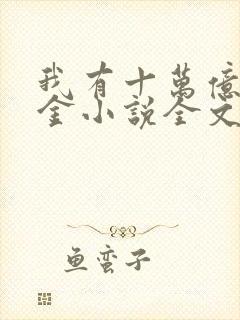 我有十萬億
金小說全文
鱼蛮子